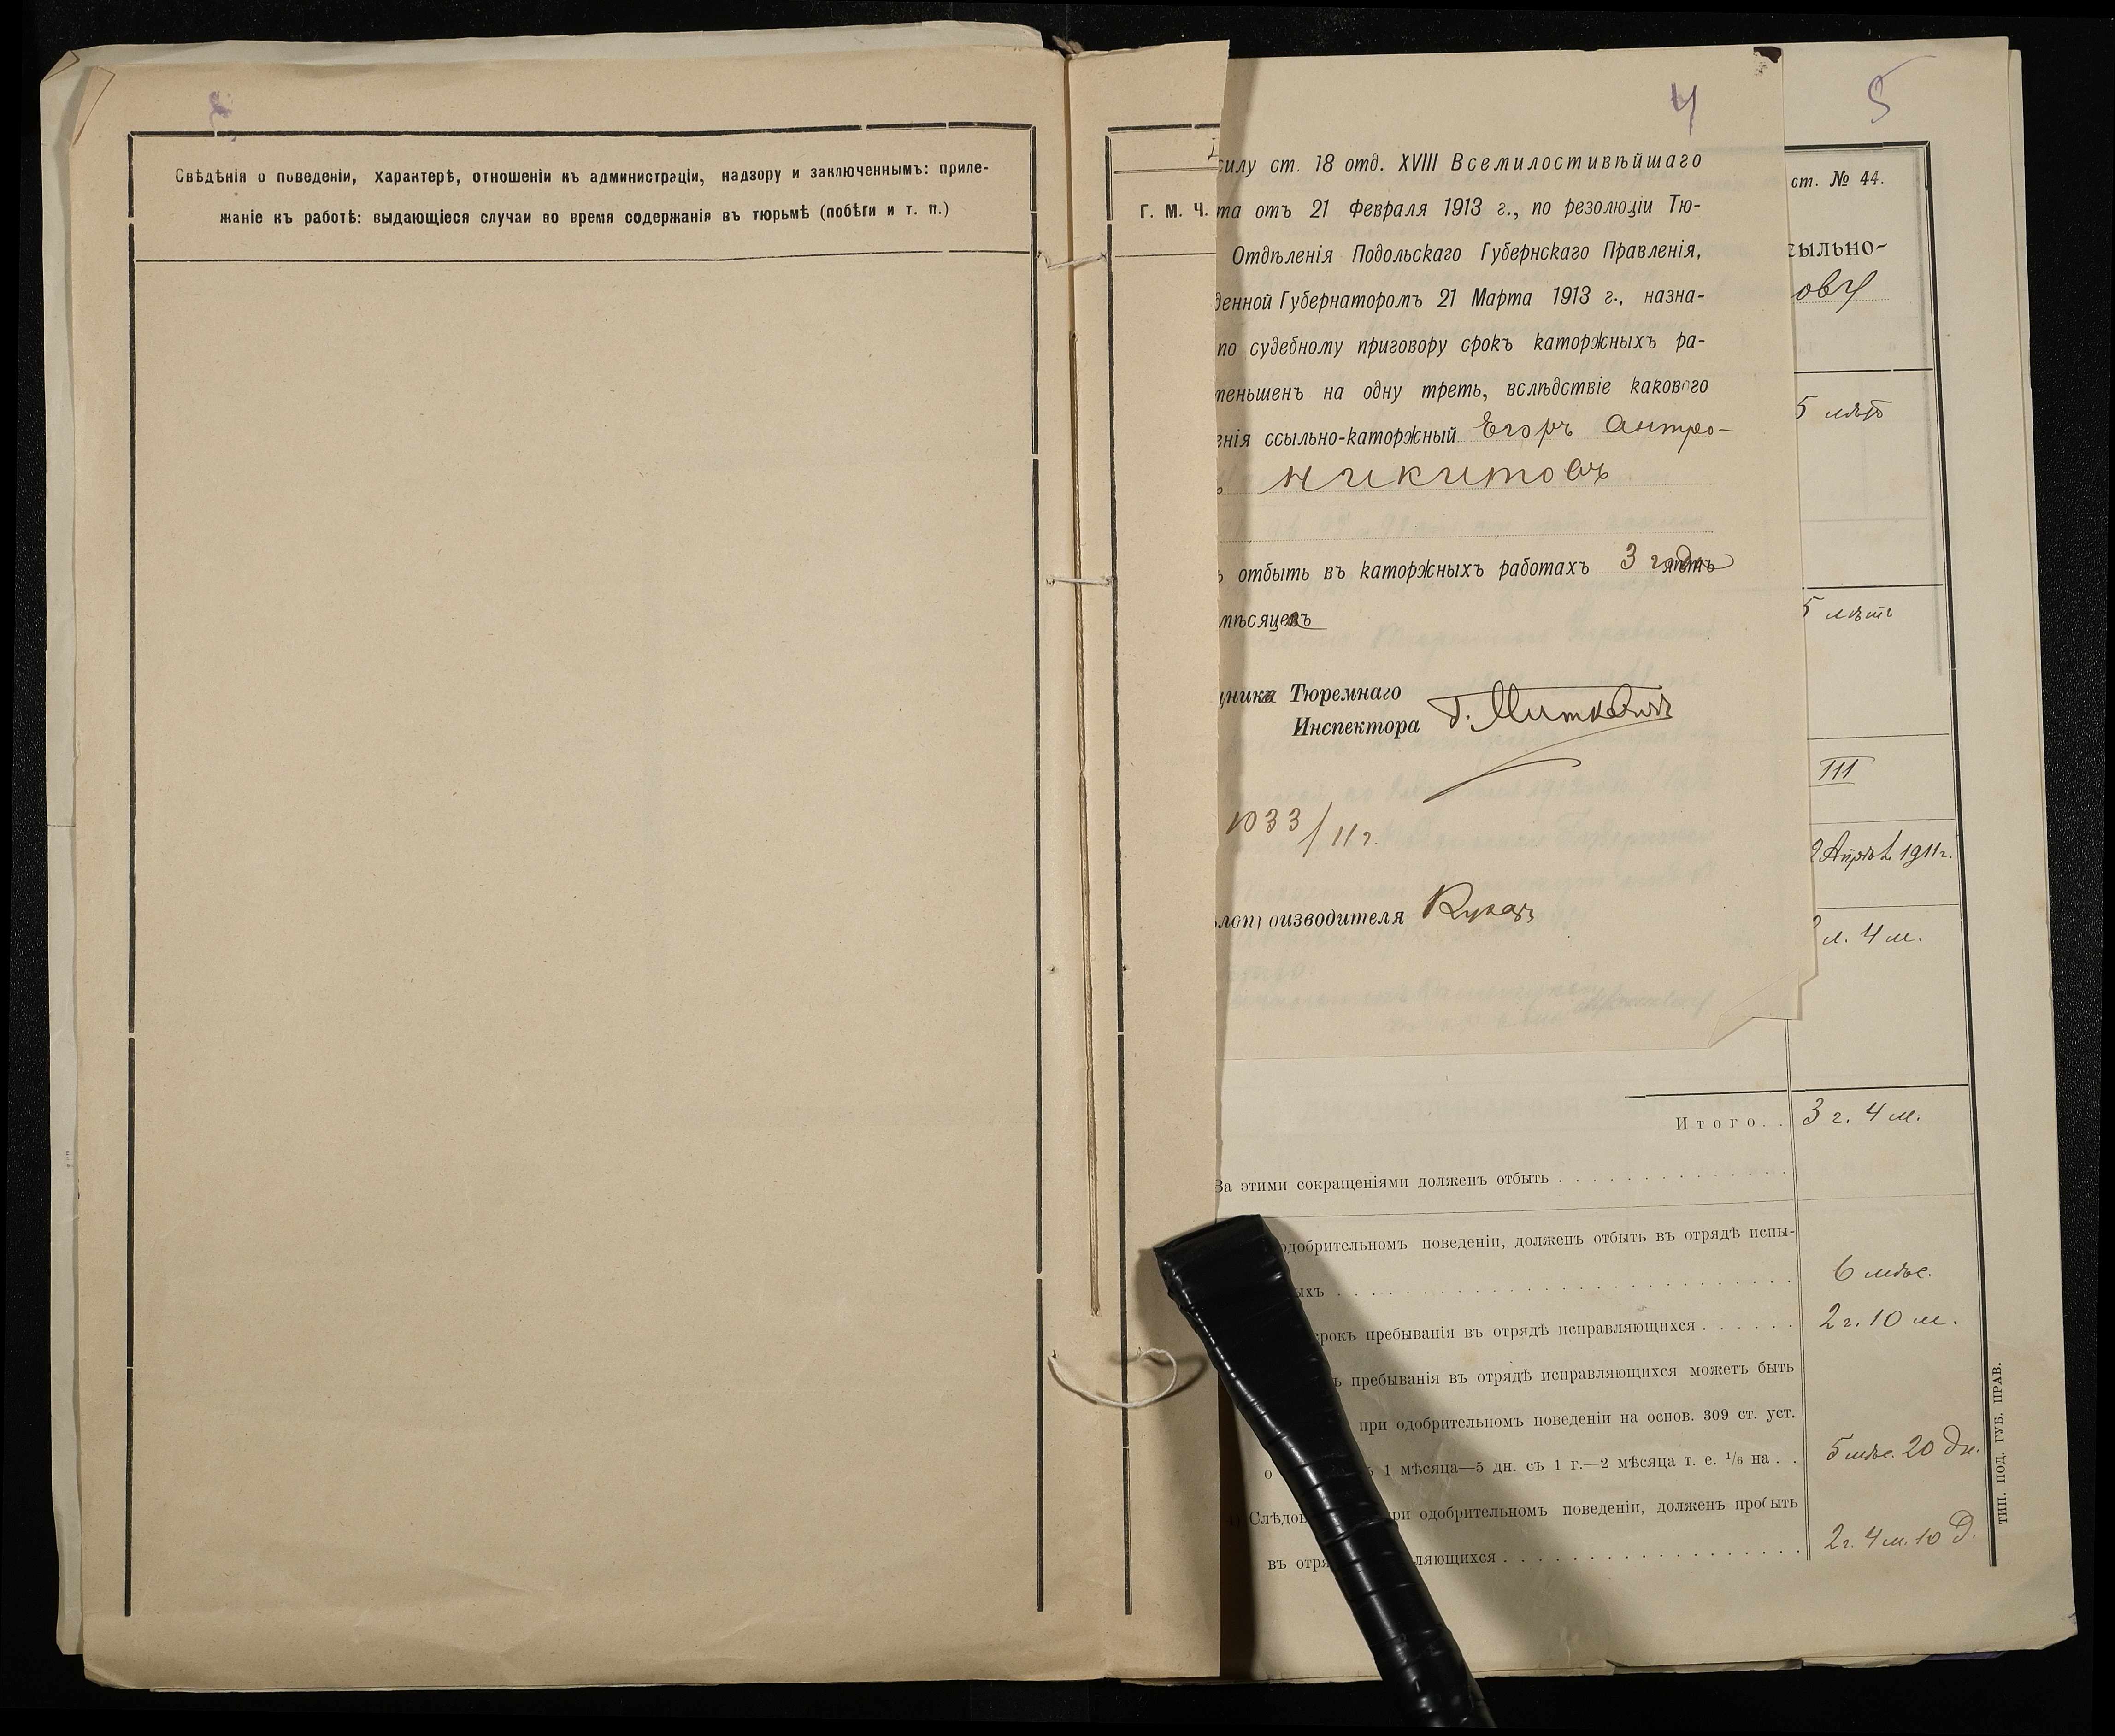 Свѣдѣнія о поведеніи, характерѣ, отношеніи къ администраціи, надзору и заключеннымъ: приле-
жаніе къ работѣ: выдающіеся случаи во время содержанія въ тюрьмѣ (побѣги и т. п.)
Г. М. Ч.
4
силу ст. 18 отд. XVIII Всемилостивѣйшаго
та отъ 21 Февраля 1913 г., по резолюціи Тю-
Отдѣленія Подольскаго Губернскаго Правленія,
денной Губернаторомъ 21 Марта 1913 г., назна-
по судебному приговору срокъ каторжныхъ ра-
меньшенъ на одну треть, вслѣдствіе какового
енія ссыльно-каторжный Егоръ Антро-
ъ Никитовъ
ъ отбыть въ каторжныхъ работахъ 3 года
мѣсяца
щника Тюремнаго
Инспектора
1033/11 г.
ѣлопроизводителя
5
ст. № 44.
сыльно-
ову
5 лѣтъ
5 лѣтъ
III
2 Апрѣл 1911 г.
л. 4 м.
Итого. . 3 г. 4 м.
За этими сокращеніями долженъ отбыть
одобрительномъ поведеніи, долженъ отбыть въ отрядѣ испы-
ыхъ 6 мѣс.
срокъ пребыванія въ отрядѣ исправляющихся 2 г. 10 м.
ъ пребыванія въ отрядѣ исправляющихся можетъ быть
при одобрительномъ поведеніи на основ. 309 ст. уст.
о ъ 1 мѣсяца—5 дн. съ 1 г.—2 мѣсяца т. е. 1/6 на . . 5 мѣс. 20 дн.
Слѣдов ри одобрительномъ поведеніи, долженъ пробыть
въ отря ляющихся 2 г. 4 м. 10 д.
ТИП. ПОД. ГУБ. ПРАВ.